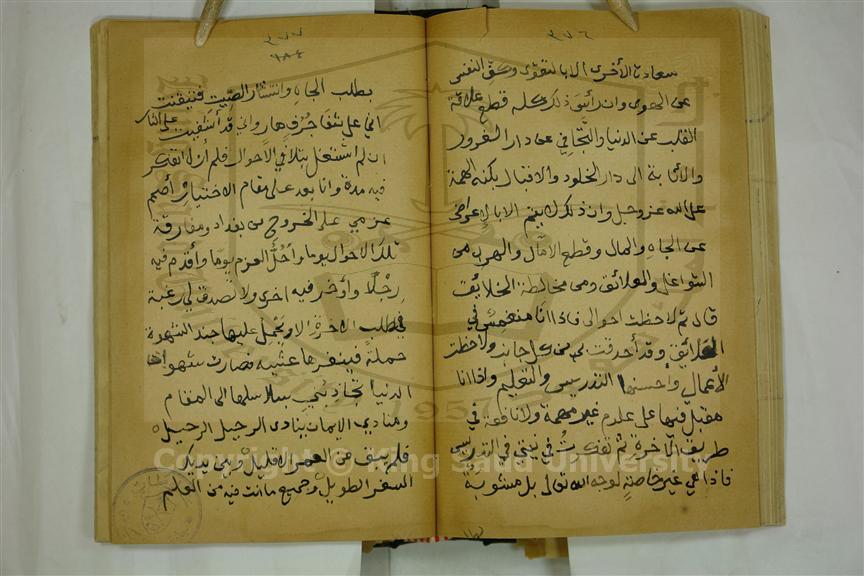 سعادة الأخرى الا بالتقوى وكف النفس
عن الهوى وان رأس ذلك كله قطع علاقة
القلب عن الدنيا والتجافي عن دار الغرور
والأنابة الى دار الخلود والاقبال بكنه الهمة
على الله عز وجل وان ذلك لا يتم الا بالاعراض
عن الجاه والمال وقطع الآمال والهرب من
الشواغل والعلائق ومن مخالطة الخلايق
قال ثم لاحظت احوالى فاذا انا منغمس في
العلائق وقد أحدقت بي من كل جانب ولاحظت
الأعمال وأحسنها التدريس والتعليم واذا انا
مقبل فيها على علوم غير مهمة ولا نافعة في
طريق الآخرة ثم تفكرت في نيتي في التدريس
فاذا هي غير خالصة لوجه الله تعالى بل مشوبة
بطلب الجاه وانتشار الصيت فتيقنت
اني على شفا جرف هار واني قد أشفيت على النار
ان لم اشتغل بتلافي الاحوال فلم أزل اتفكر
فيه مدة وانا بعد على مقام الاختيار وأصمم
عزمي على الخروج من بغداد ومفارقة
تلك الاحوال يوما وأحل العزم يوما وأقدم فيه
رجلا وأؤخر فيه اخرى ولا تصدق لي رغبة
في طلب الاخرة الا وتحمل عليها جند الشهوة
حملة فيفترها عشية فصارت شهوات
الدنيا تجاذبني بسلاسلها الى المقام
ومنادي الايمان ينادى الرحيل الرحيل
فلم يبق من العمر الا قليل وبين يديك
السفر الطويل وجميع ما انت فيه من العلم
Copyright © King Saud University
1957